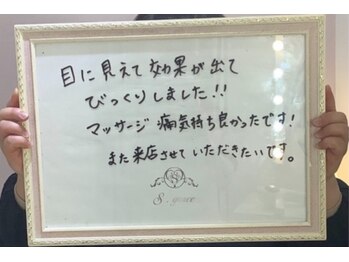 目に見えて効果が出て
びっくりしました!!
マッサージ痛気持ち良かったです!
また来店させていただきたいです。
S. grace